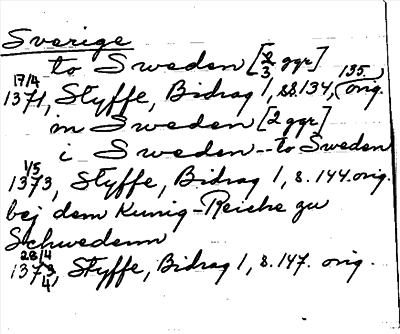 Sverige
to Sweden [2/3 ggr]
17/4 1371, Styffe, Bidrag 1, ss. 134, 135, orig.
in Sweden [2 ggr]
i Sweden -- to Sweden
1/5 1373, Styffe, Bidrag 1, s. 144. orig.
bej dem Kunig-Reiche zu
Schwedenn
28/4 1373, 4, Styffe, Bidrag 1, s. 147. orig.